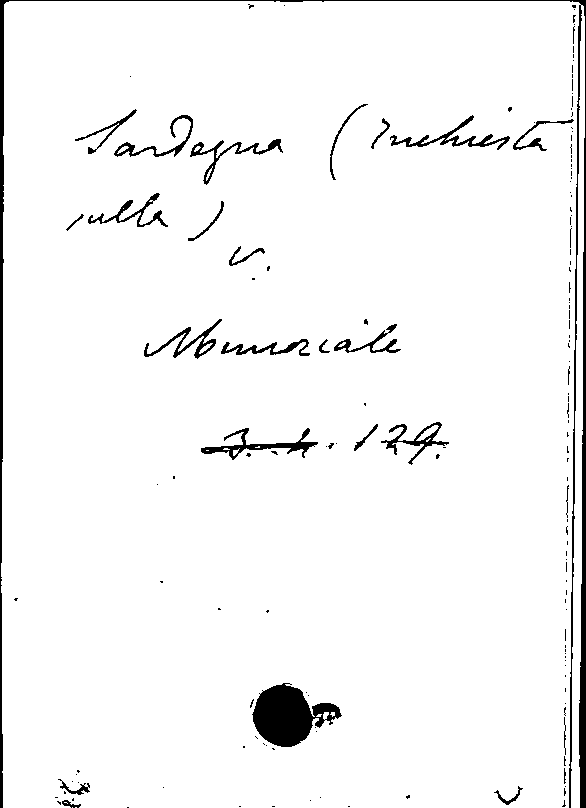 Sardegna (Inchiesta
sulla)
v.
Memoriale
3. 4. 129.